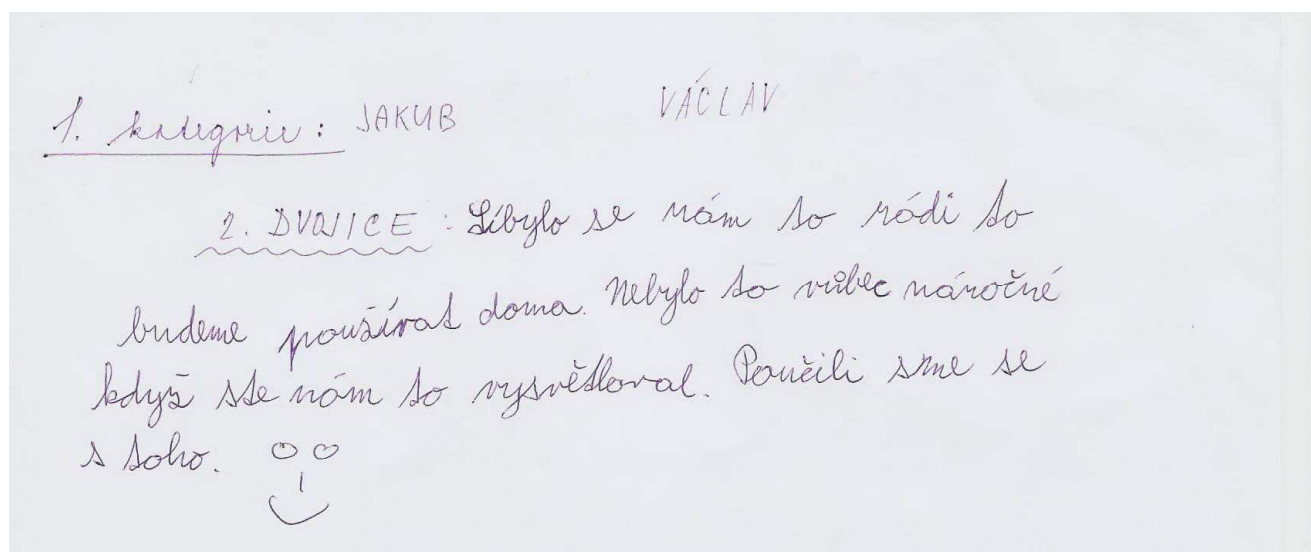 1. kategorie: JAKUB VÁCLAV
2. DVOJICE: Líbylo se nám to rádi to
budeme používat doma. Nebylo to vůbec náročné
když ste nám to vysvětloval. Poučili sme se
s toho.